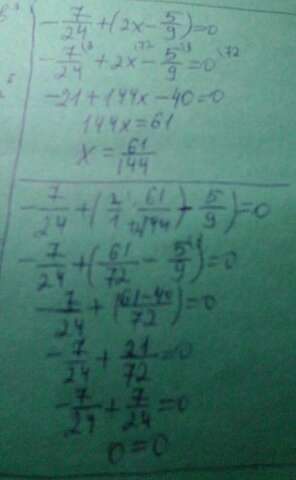 -7/24+(2x-5/9)=0
-7/24\3+2x\72-5/9\8=0\72
-21+144x-40=0
144x=61
x=61/144
-7/24+(2/1·61/144-5/9)=0
-7/24+(61/72-5/9\8)=0
-7/24+(61-40/72)=0
-7/24+21/72=0
-7/24+7/24=0
0=0